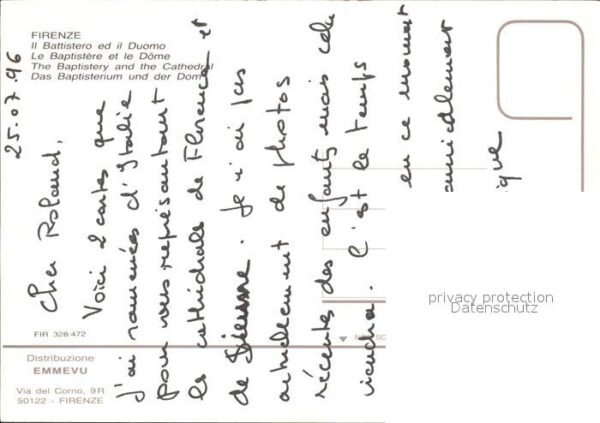 FIRENZE
Il Battistero ed il Duomo
Le Baptistère et le Dôme
The Baptistery and the Cathedral
Das Baptisterium und der Dom
25.07.96
Cher Roland,
Voici 2 cartes que
j'ai ramenées d'Italie
pour vous représentant
la cathédrale de Florence et
de Sienne. Je n'ai pas
actuellement de photos
récentes des enfants mais cela
viendra. C'est le temps
en ce moment
amicalement
ique
FIR 328-472
Distribuzione
EMMEVU
Via del Corno, 9R
50122 - FIRENZE
privacy protection
Datenschutz